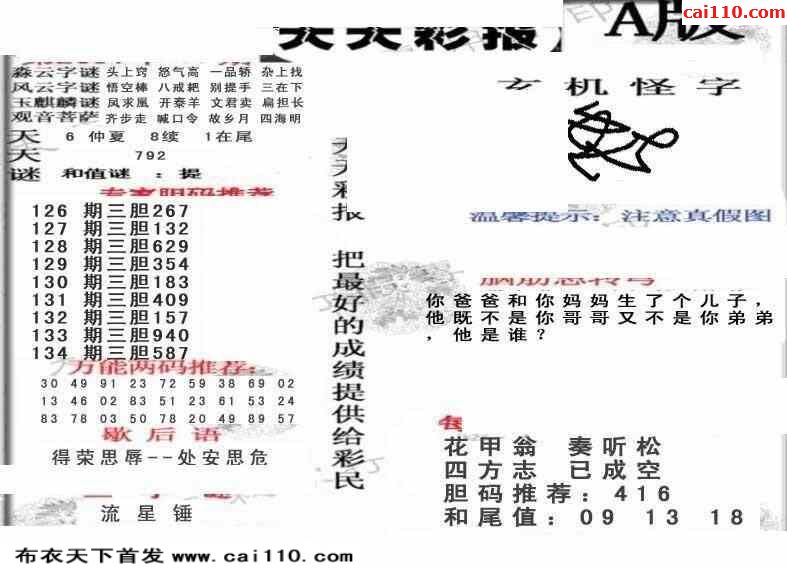 cai110.com
天天彩报
A版
森云字谜 头上窍 怒气高 一品轿 杂上找
风云字谜 悟空棒 八戒耙 别提手 三在下
玉麒麟谜 凤求凰 开泰羊 文君卖 扁担长
观音菩萨 齐步走 喊口令 故乡月 四海明
天 6 仲夏 8续 1在尾
天 792
谜 和值谜 : 提
专家胆码推荐
126 期三胆267
127 期三胆132
128 期三胆629
129 期三胆354
130 期三胆183
131 期三胆409
132 期三胆157
133 期三胆940
134 期三胆587
万能两码推荐:
30 49 91 23 72 59 38 69 02
13 46 02 83 51 23 61 53 24
83 78 03 50 78 20 49 89 57
歇后语
得荣思辱--处安思危
流星锤
布衣天下首发 www.cai110.com
天天彩报 把最好的成绩提供给彩民
玄机怪字
温馨提示: 注意真假图
脑筋急转弯
你爸爸和你妈妈生了个儿子，
他既不是你哥哥又不是你弟弟
，他是谁？
花甲翁 奏听松
四方志 已成空
胆码推荐: 416
和尾值: 09 13 18